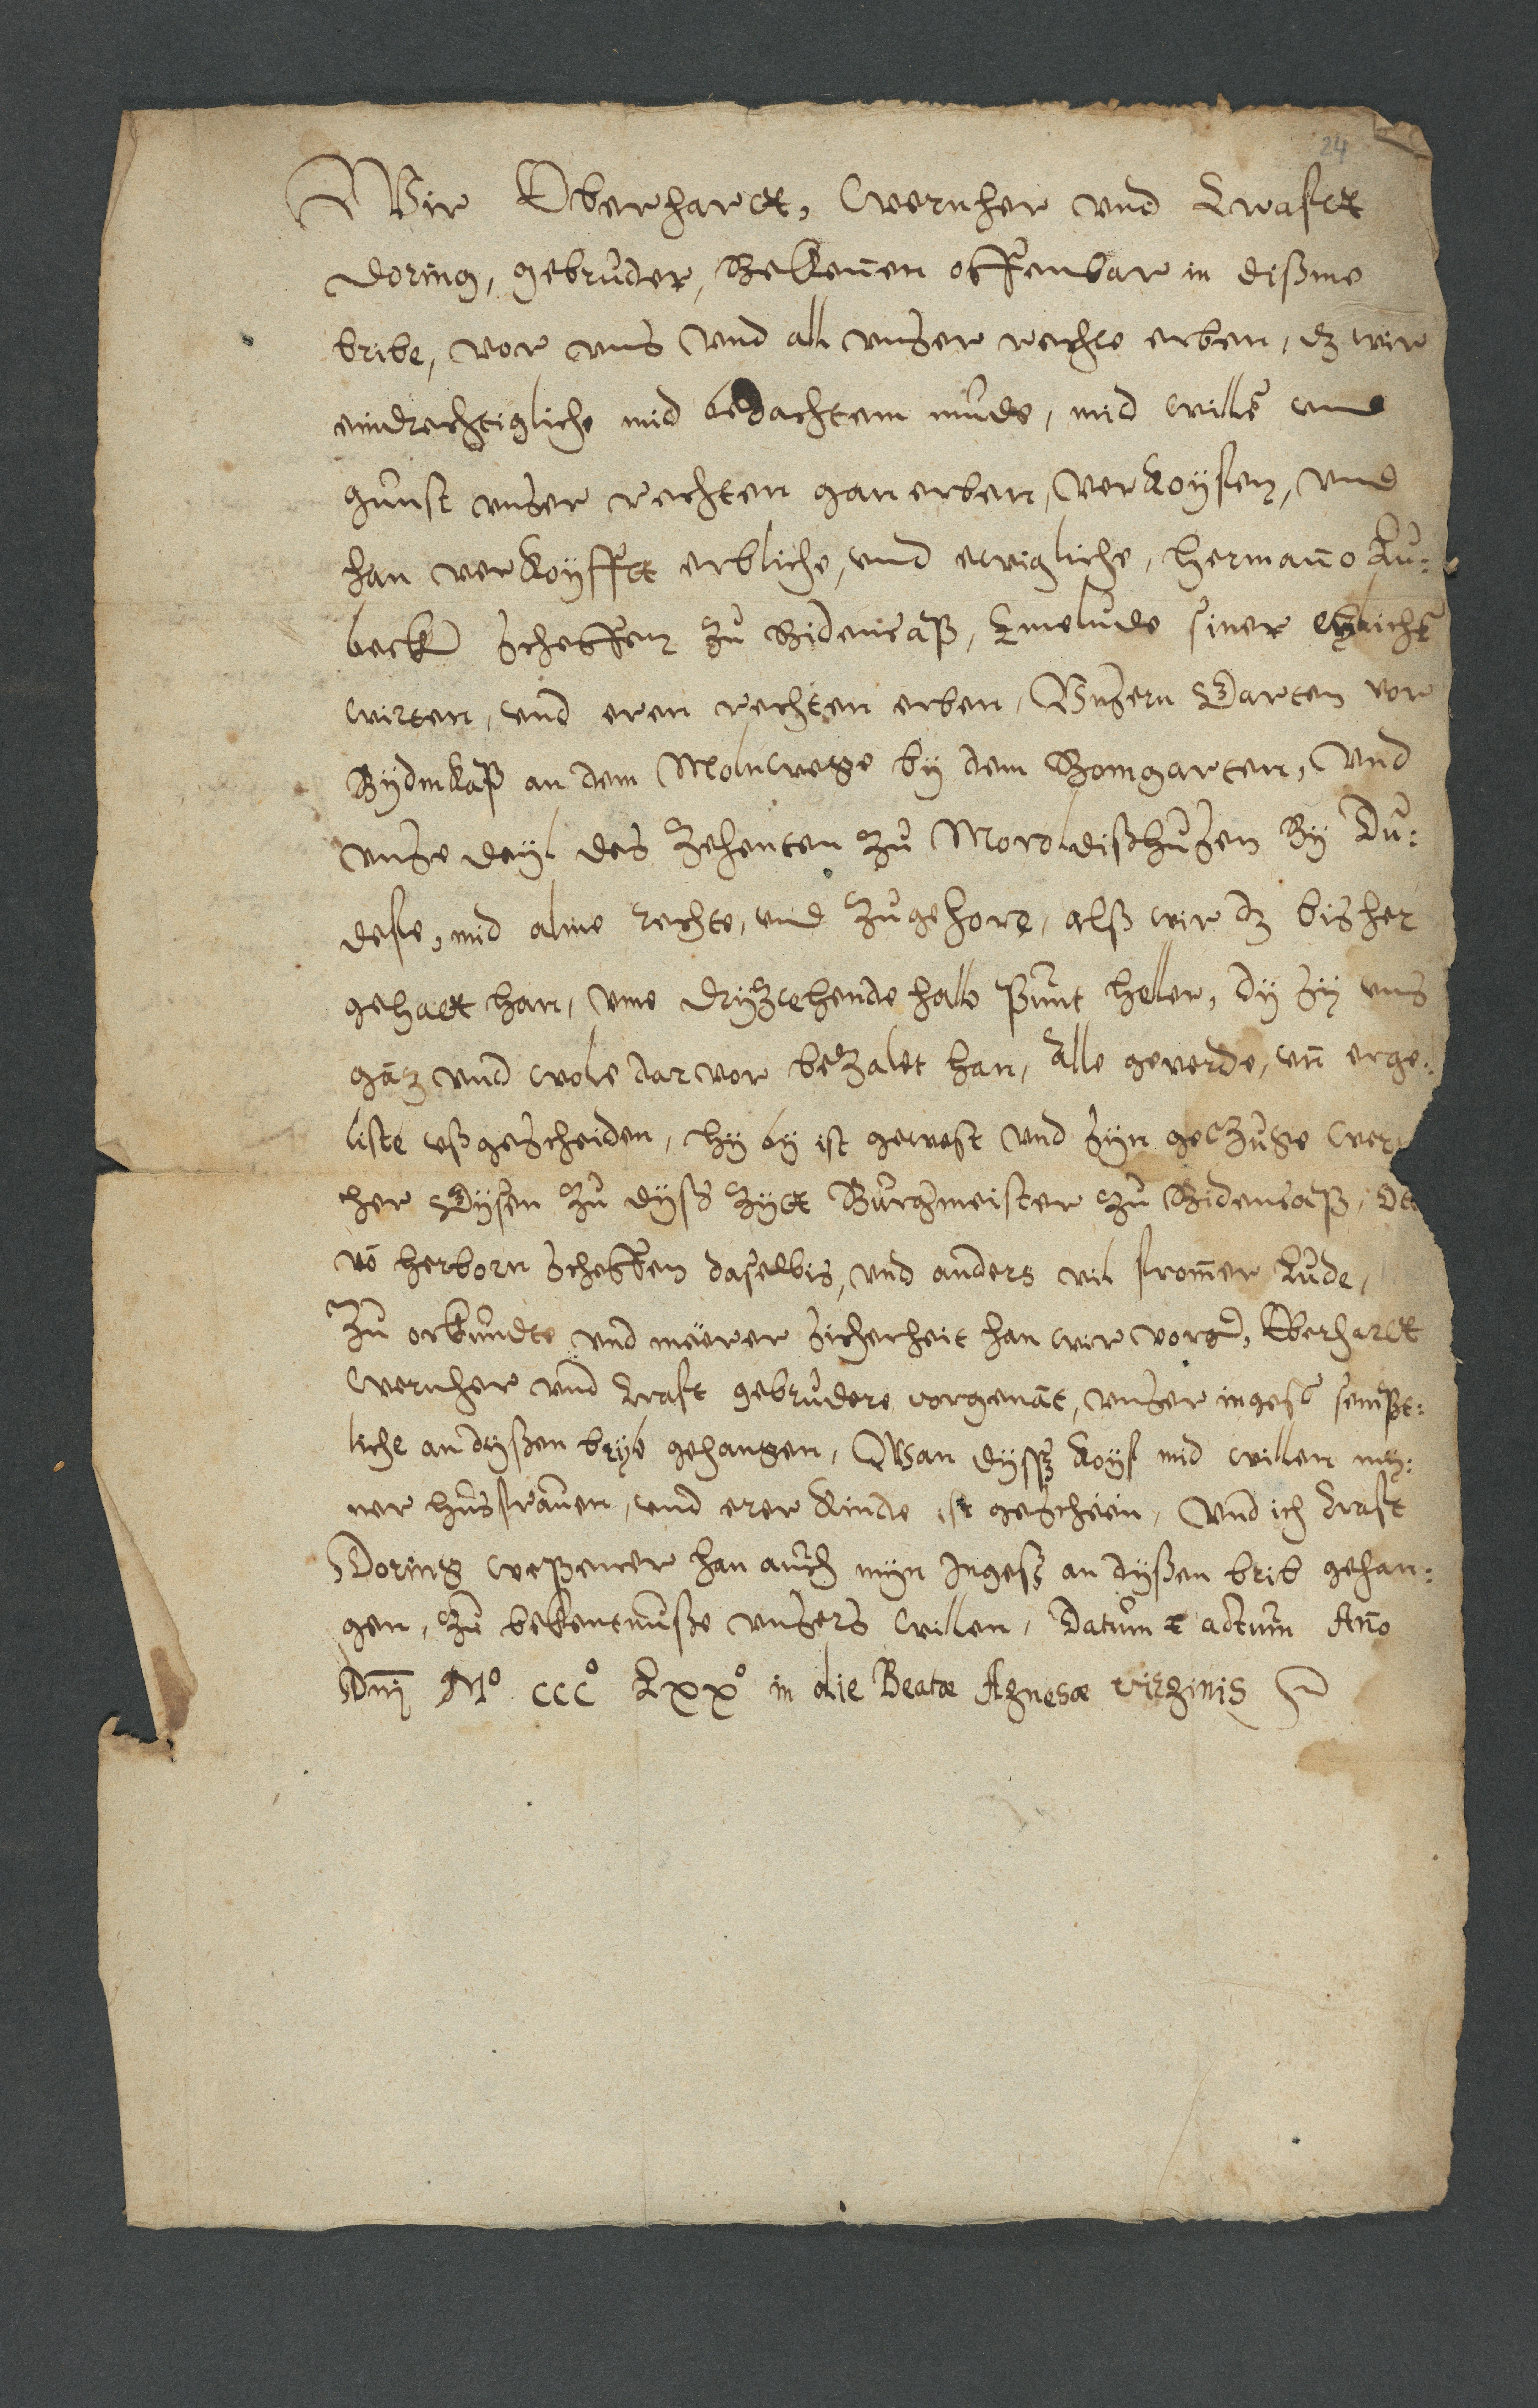 24
Wir Eberharctt, Wernher vnd Krafftt
Doring, gebruder, Bekennen offenbar in dißme
bribe, vor vns vnd all vnser rechte erben, dz wir
eindrechtigliche mid bedachtem mude, mid willē vnd
gunst vnser rechten ganerben, verkoyfen, vnd
han verkoyfftt erbliche, vnd ewigliche, Hermano Lu-
beck Scheffen zu Bidencaß, Emelude siner elichē
wirten, vnd eren rechten erben, Vnsern Garten vor
Bydinkaß an dem Molnwege by dem Bomgarten, vnd
vnse deyl des Zehenten zu Moroldißhusen By Du-
defe, mid alme rechte, vnd zugehore, alß wir dz bisher
gehactt han, vme dryzcehende halb punt heller, dy sy vns
gāz vnd wole darvor bezalet han, Alle geverde, vñ erge-
liste vßgescheiden, hy by ist gewest vnd syn geczuge Wer
her Dysen zu dyß zytt Burgmeister zu Bidencaß,
vō Herborn Scheffen daselbis, vnd anders vil fromer Lude,
Zu orkundte vnd merer sicherheit han wir vorg, Eberharctt
Wernher vnd Kraft gebrudere vorgenāt, vnser ingesß sempt-
liche an dyßen bryb gehangen, Wan dyssz koyf mid willen my-
ner husfrauen, vnd erer kinde ist geschein, Vnd ich Kraft
Doring wepener han auch myn Ingesz an dyßen brib gehan-
gen, zu bekentnuße vnsers willen, Datum & actum Año
Dnj Mº cccº Lxxº in die Beatæ Agnesæ virginis